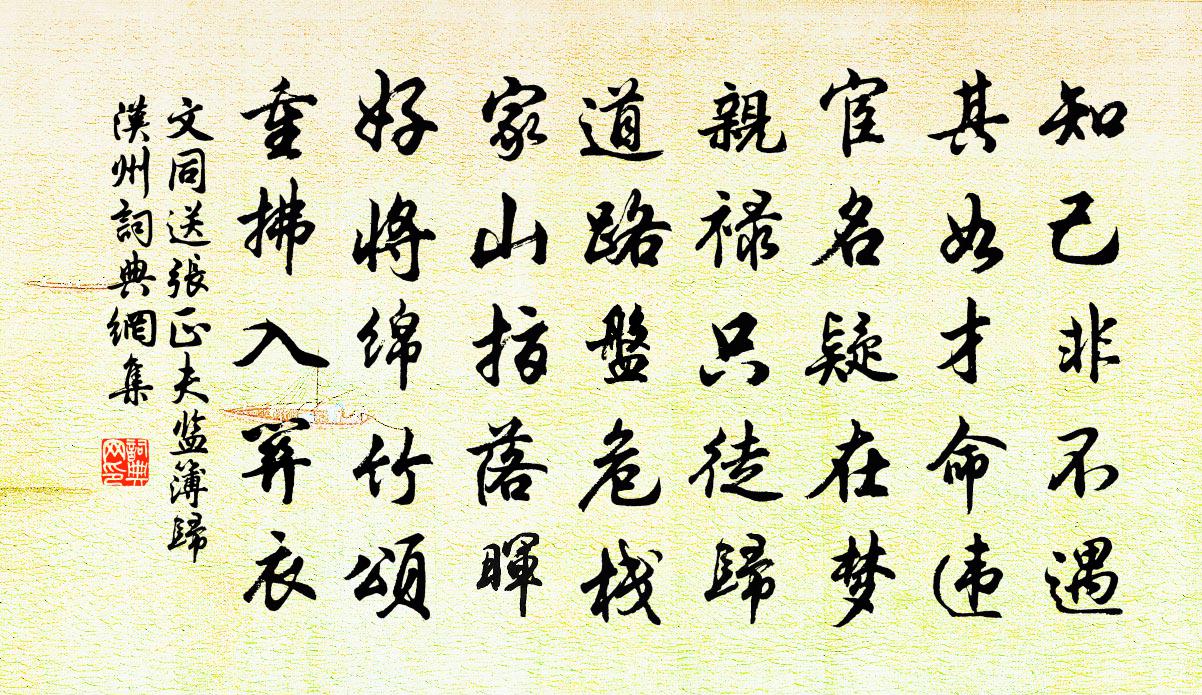 知己非不遇
其如才命违
宦名疑在梦
親禄只徒歸
道路盤危栈
家山指落暉
好將绵竹頌
重拂入關衣
文同送張正夫监簿歸
漢州詞典網集
詞典网印